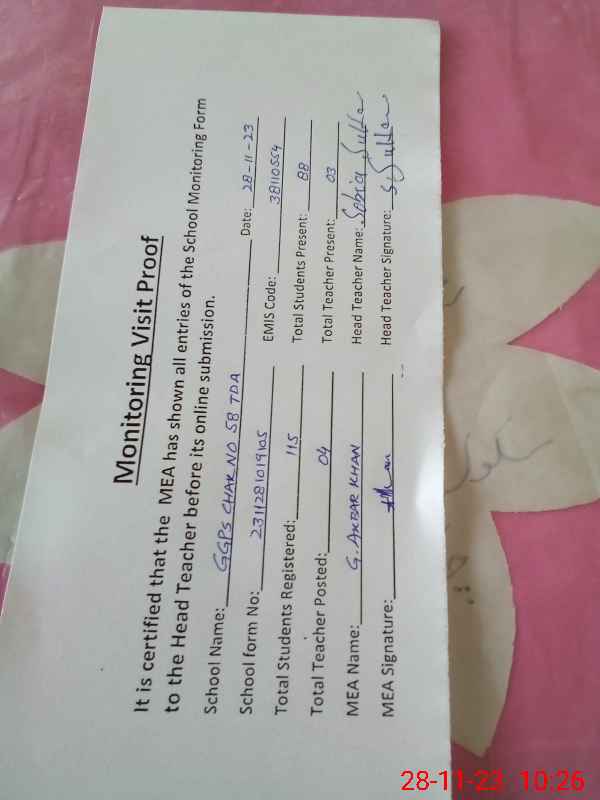 Monitoring Visit Proof
It is certified that the MEA has shown all entries of the School Monitoring Form
to the Head Teacher before its online submission.
School Name: GGPS CHAK NO 58 TDA Date: 28-11-23
School form No: 2311281019105 EMIS Code: 38110554
Total Students Registered: 115 Total Students Present: 88
Total Teacher Posted: 04 Total Teacher Present: 03
MEA Name: G. AKBAR KHAN Head Teacher Name: Sobia
MEA Signature: Head Teacher Signature:
28-11-23 10:26